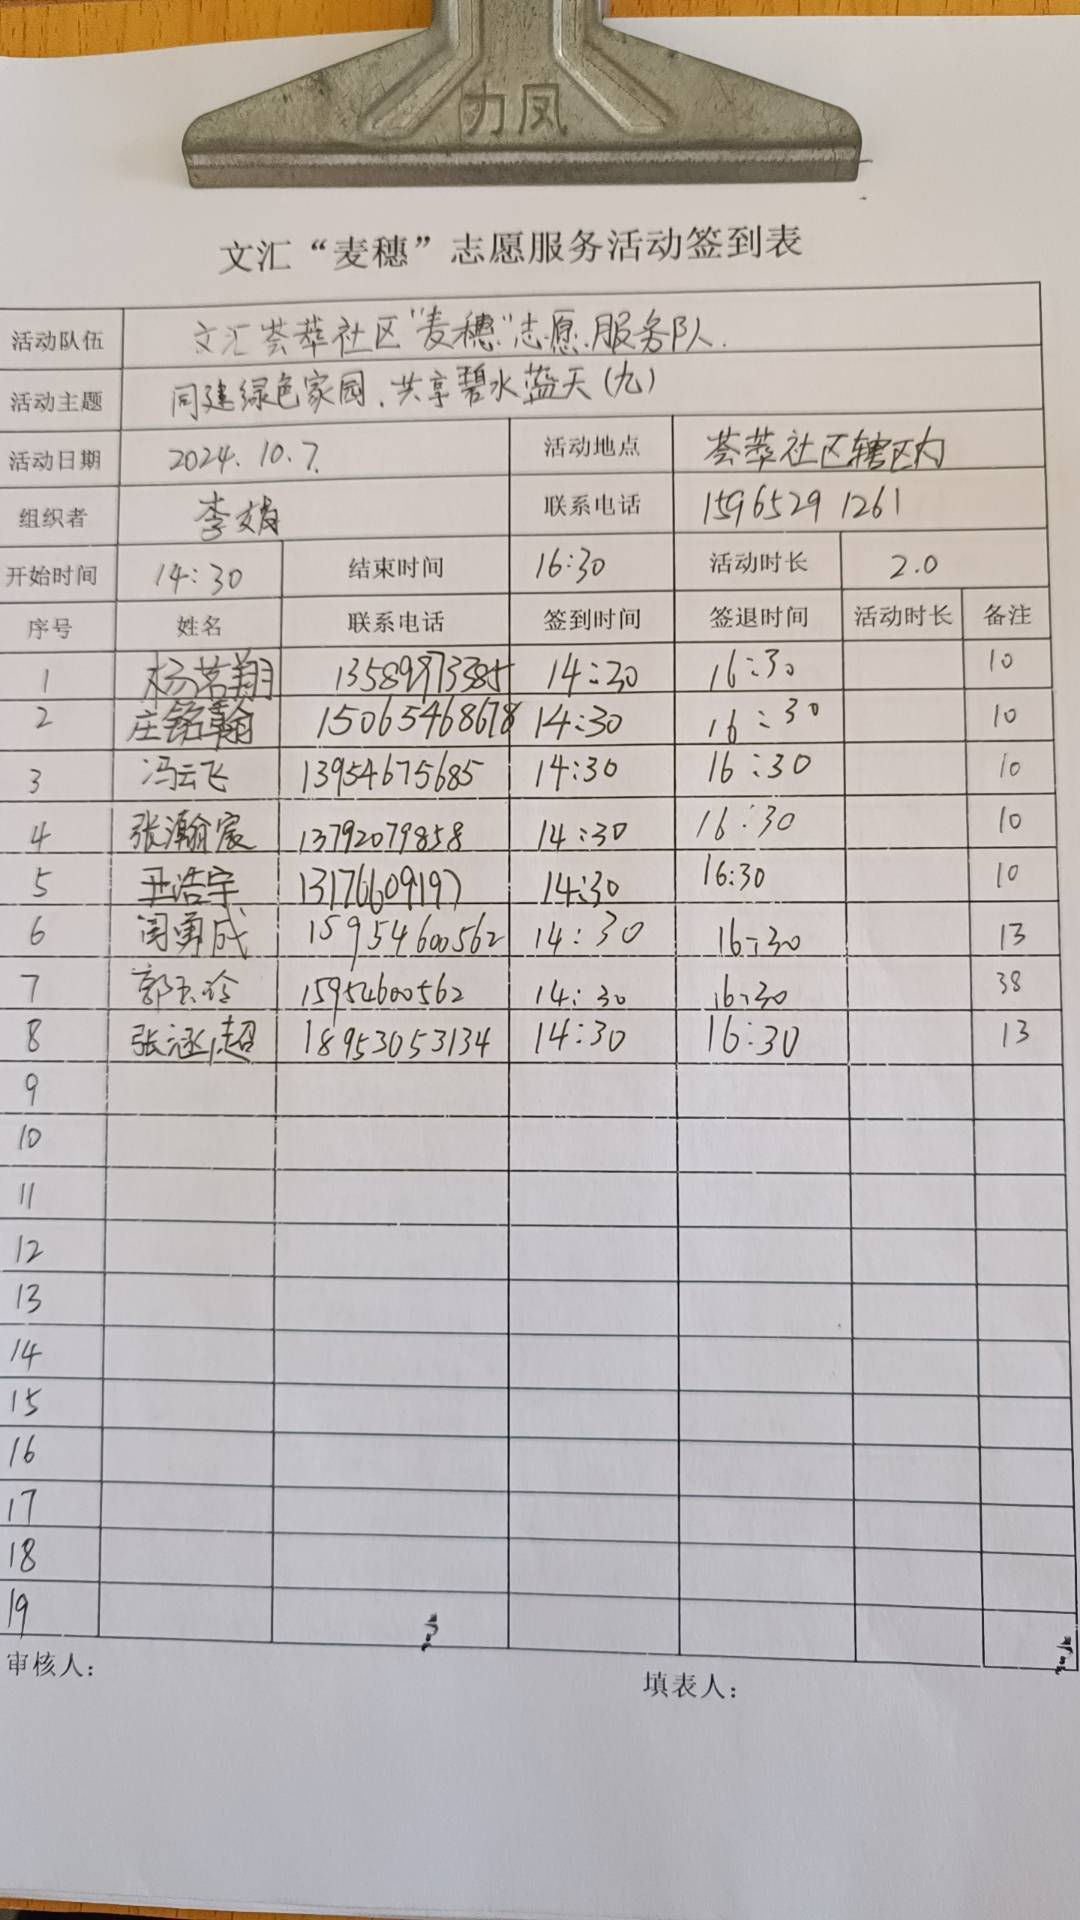 力凤
文汇“麦穗”志愿服务活动签到表
活动队伍 文汇荟萃社区“麦穗”志愿服务队.
活动主题 同建绿色家园.共享碧水蓝天(九)
活动日期 2024.10.7. 活动地点 荟萃社区辖区内
组织者 李娟 联系电话 15965291261
开始时间 14:30 结束时间 16:30 活动时长 2.0
序号 姓名 联系电话 签到时间 签退时间 活动时长 备注
1 杨茗翔 13589973385 14:30 16:30 10
2 庄铭翰 15065468678 14:30 16:30 10
3 冯云飞 13954675685 14:30 16:30 10
4 张瀚宸 13792079858 14:30 16:30 10
5 王浩宇 13176609197 14:30 16:30 10
6 闫勇成 15954600562 14:30 16:30 13
7 郭玉玲 15954600562 14:30 16:30 38
8 张涵超 18953053134 14:30 16:30 13
9
10
11
12
13
14
15
16
17
18
19
审核人: 填表人: